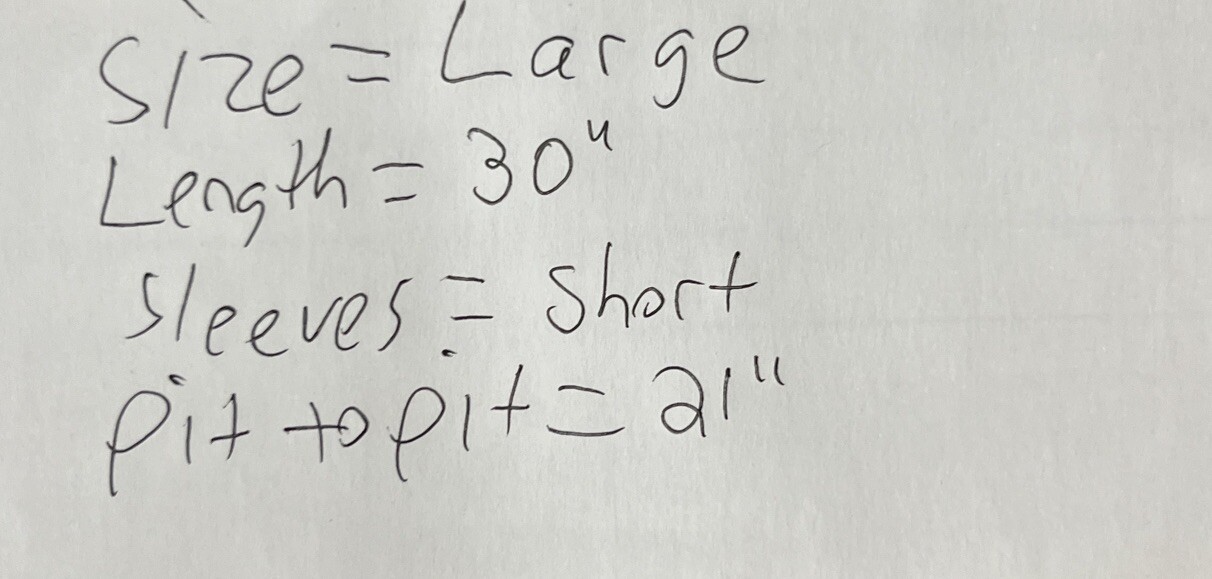 Size = Large
Length = 30"
Sleeves = Short
pit to pit = 21"